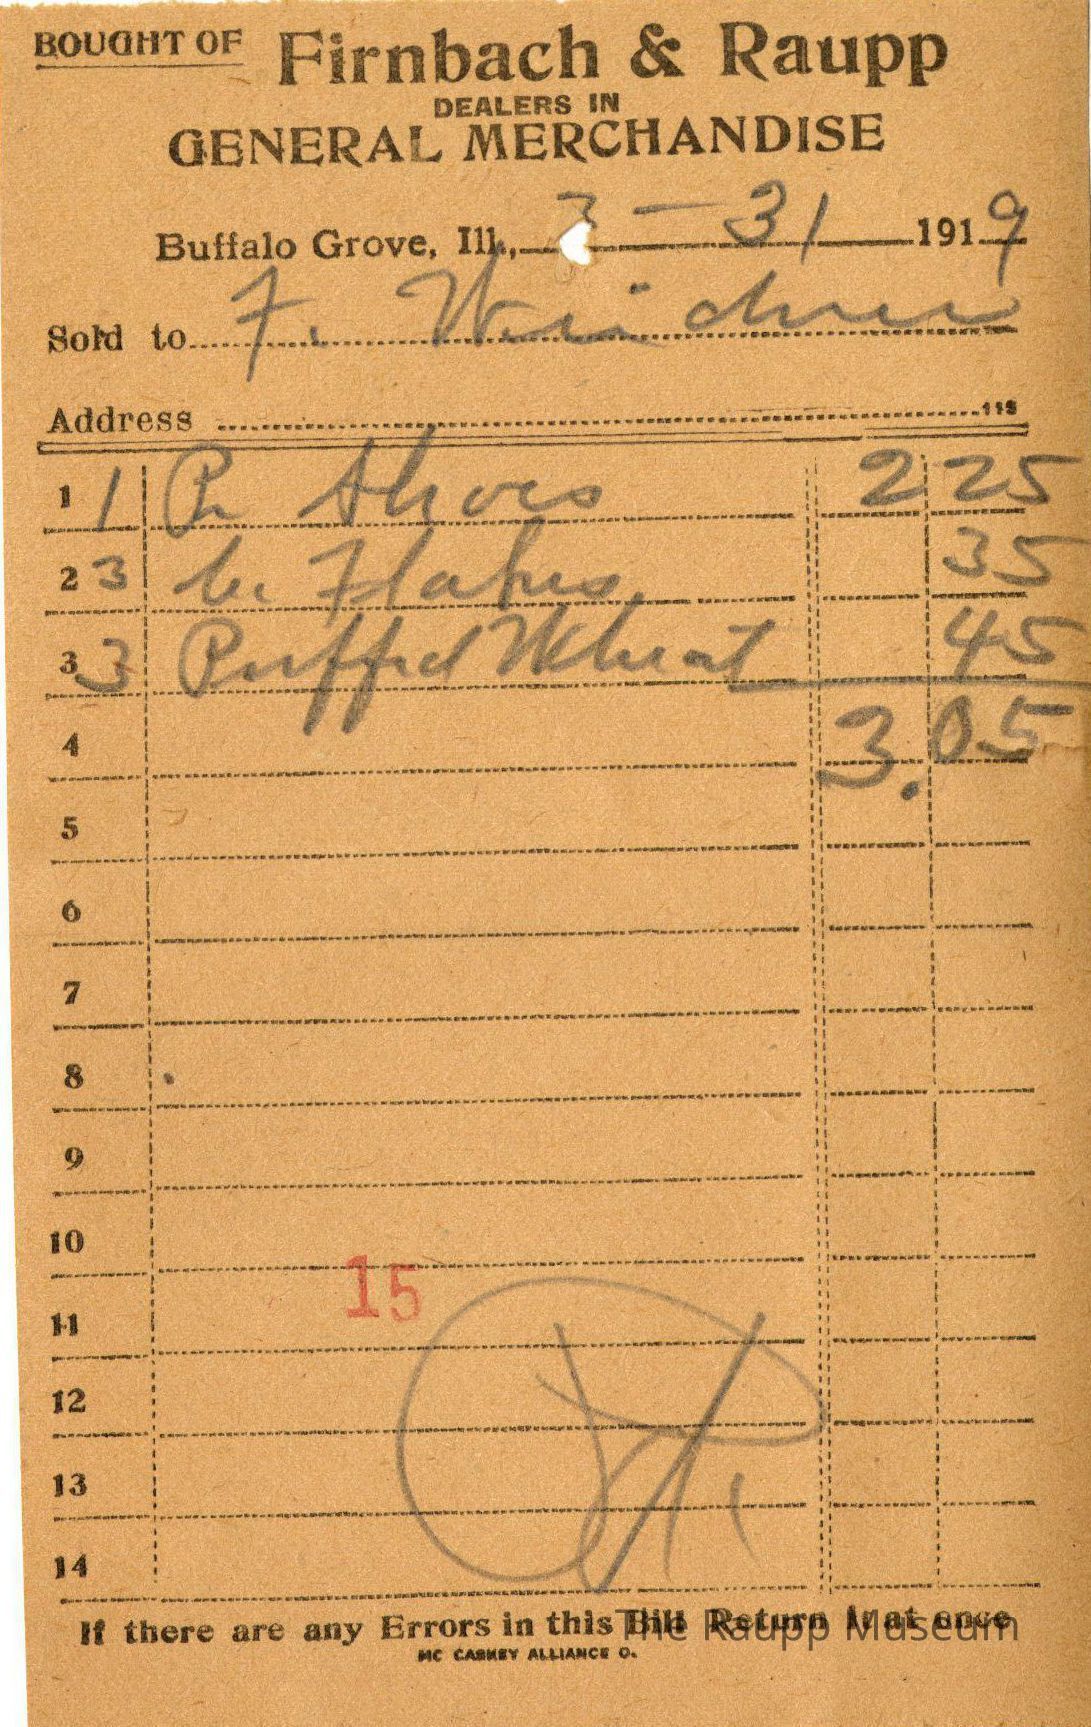 BOUGHT OF Firnbach & Raupp
DEALERS IN
GENERAL MERCHANDISE
Buffalo Grove, Ill., 3 - 31 1919
Sold to F. Weidner
Address
1 1 Pr Shoes 2 25
2 3 Flakes 35
3 3 Puffed Wheat 45
4 3.05
5
6
7
8
9
10
15
11
12
13
14
If there are any Errors in this Bill Return it at once
The Raupp Museum
MC CASKEY ALLIANCE O.